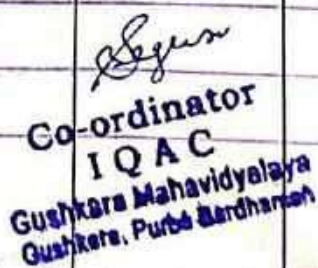 Co-ordinator
I Q A C
Gushkara Mahavidyalaya
Gushkara, Purba Bardhaman